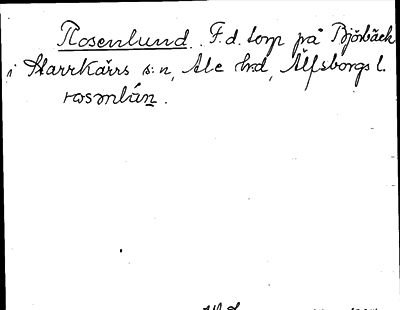 Rosenlund. F.d. torp på Björbäck
i Starrkärrs s:n, Ale hd, Älfsborgs l.
rosənlún.